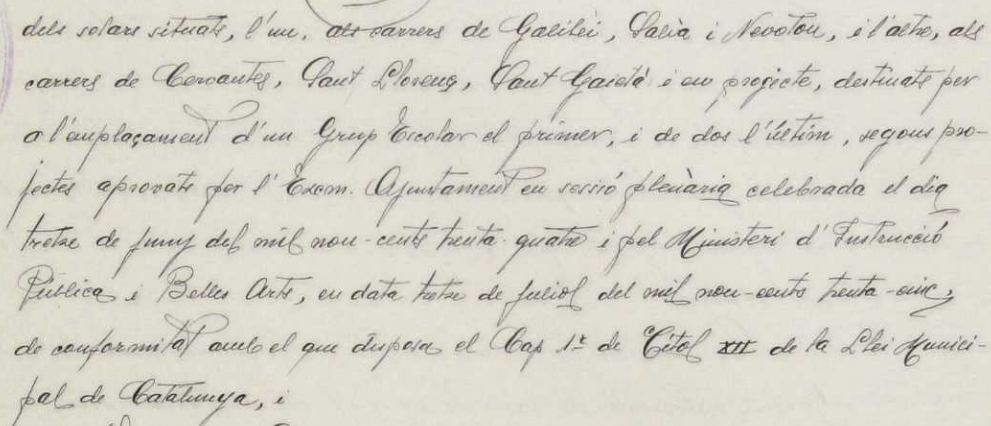 dels solars situats, l'un, als carrers de Galilei, Salvà i Nevoton, i l'altre, als
carrers de Cervantes, Sant Llorenç, Sant Gaietà i en projecte, destinats per
a l'emplaçament d'un Grup Escolar el primer, i de dos l'últim, segons pro-
jectes aprovats per l'Excm. Ajuntament en sessió plenària celebrada el dia
tretze de juny del mil nou-cents trenta-quatre i pel Ministeri d'Instrucció
Pública i Belles Arts, en data tretze de juliol del mil nou-cents trenta-cinc,
de conformitat amb el que disposa el Cap 1r de Títol XII de la Llei Munici-
pal de Catalunya, i